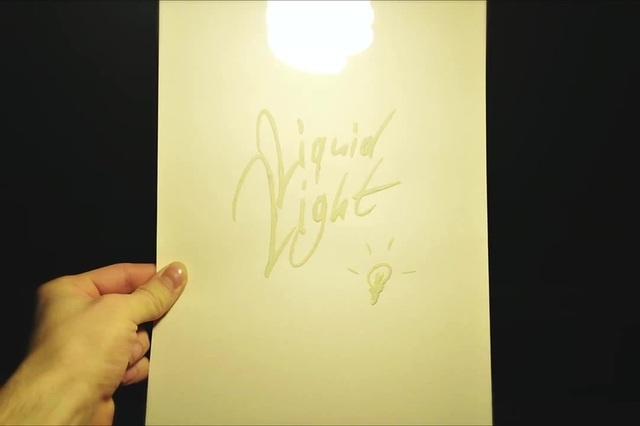 Liquid
Light